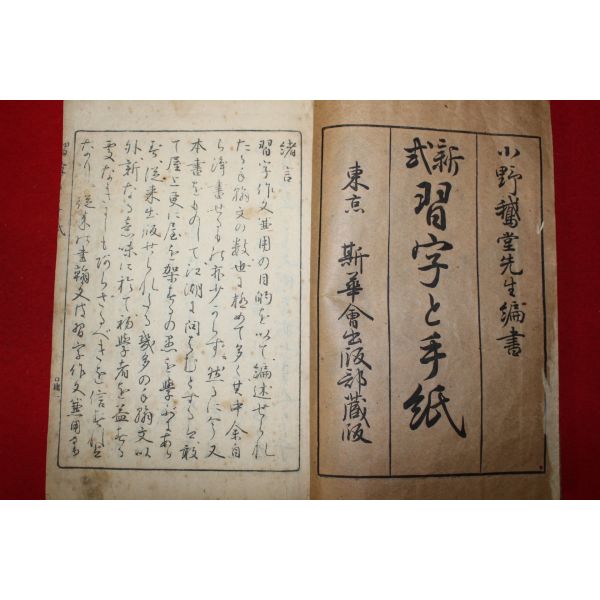 小野鵞堂先生編書
新式 習字と手紙
東京 斯華會出版部藏版
緒言
習字作文並用の目的を以て編述せられ
たる手翰文の数
て多く其中余自
ら淨書せるもの亦少からず然るに今又
本書をものして江湖に問はむとするは敢
て屋上更に屋を架するの愚を學ぶにあら
ず從来出版せられたる幾多の手翰文以
外新なる意味に於て初學者を益する
べきを信ずれば
なり 從来の書翰文は習字作文並用